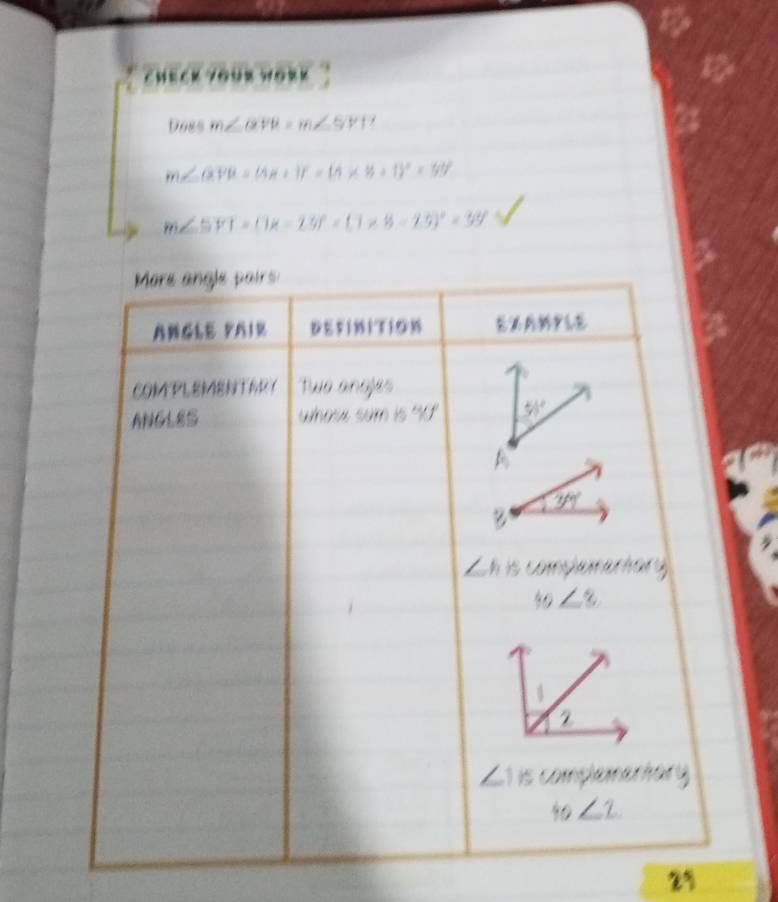 CHECK YOUR WORK
Does m∠QPR = m∠SPT?
m∠QPR = (4x + 1)° = (4 × 8 + 1)° = 33°
m∠SPT = (7x - 23)° = (7 × 8 - 23)° = 33° ✓
More angle pairs:
ANGLE PAIR DEFINITION EXAMPLE
COMPLEMENTARY Two angles
ANGLES whose sum is 90°
51°
A
39°
B
∠A is complementary
to ∠B.
1
2
∠1 is complementary
to ∠2.